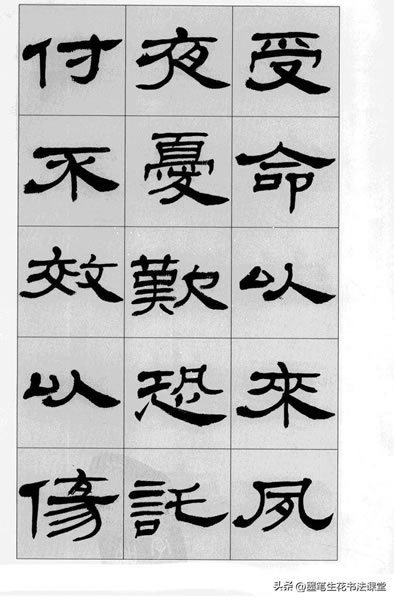 受命以來夙
夜憂歎恐託
付不效以傷
头条 @墨笔生花书法课堂